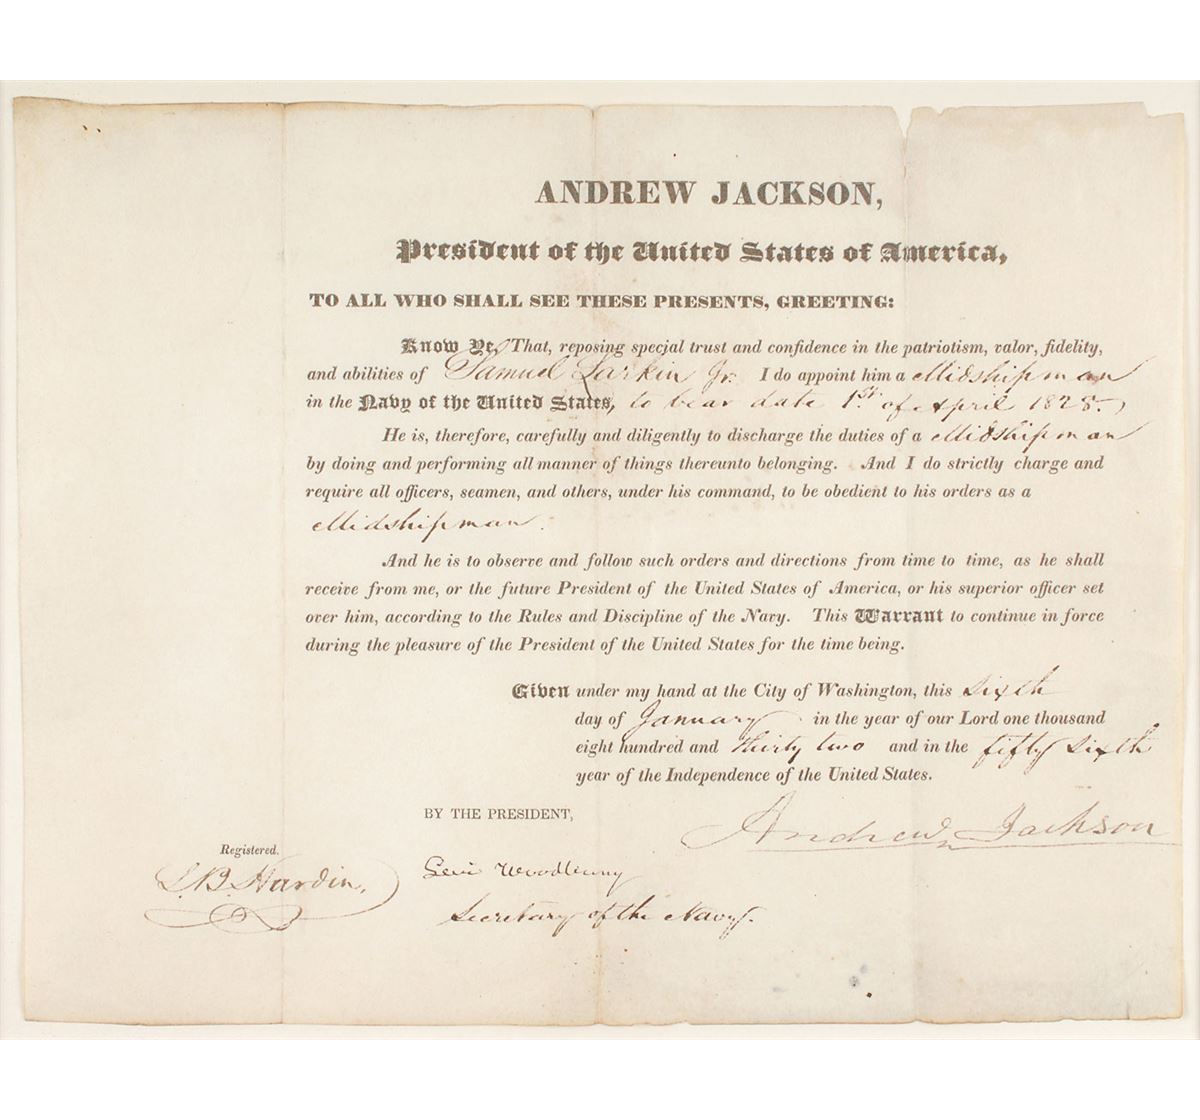 ANDREW JACKSON,
President of the United States of America,
TO ALL WHO SHALL SEE THESE PRESENTS, GREETING:
Know Ye, That, reposing special trust and confidence in the patriotism, valor, fidelity,
and abilities of Samuel Larkin Jr. I do appoint him a Midshipman
in the Navy of the United States, to bear date 1st. of April 1828.
He is, therefore, carefully and diligently to discharge the duties of a Midshipman
by doing and performing all manner of things thereunto belonging. And I do strictly charge and
require all officers, seamen, and others, under his command, to be obedient to his orders as a
Midshipman.
And he is to observe and follow such orders and directions from time to time, as he shall
receive from me, or the future President of the United States of America, or his superior officer set
over him, according to the Rules and Discipline of the Navy. This Warrant to continue in force
during the pleasure of the President of the United States for the time being.
Given under my hand at the City of Washington, this sixth
day of January in the year of our Lord one thousand
eight hundred and thirty two and in the fifty sixth
year of the Independence of the United States.
Andrew Jackson
BY THE PRESIDENT,
Levi Woodbury
Secretary of the Navy.
Registered.
S.B. Hardin,